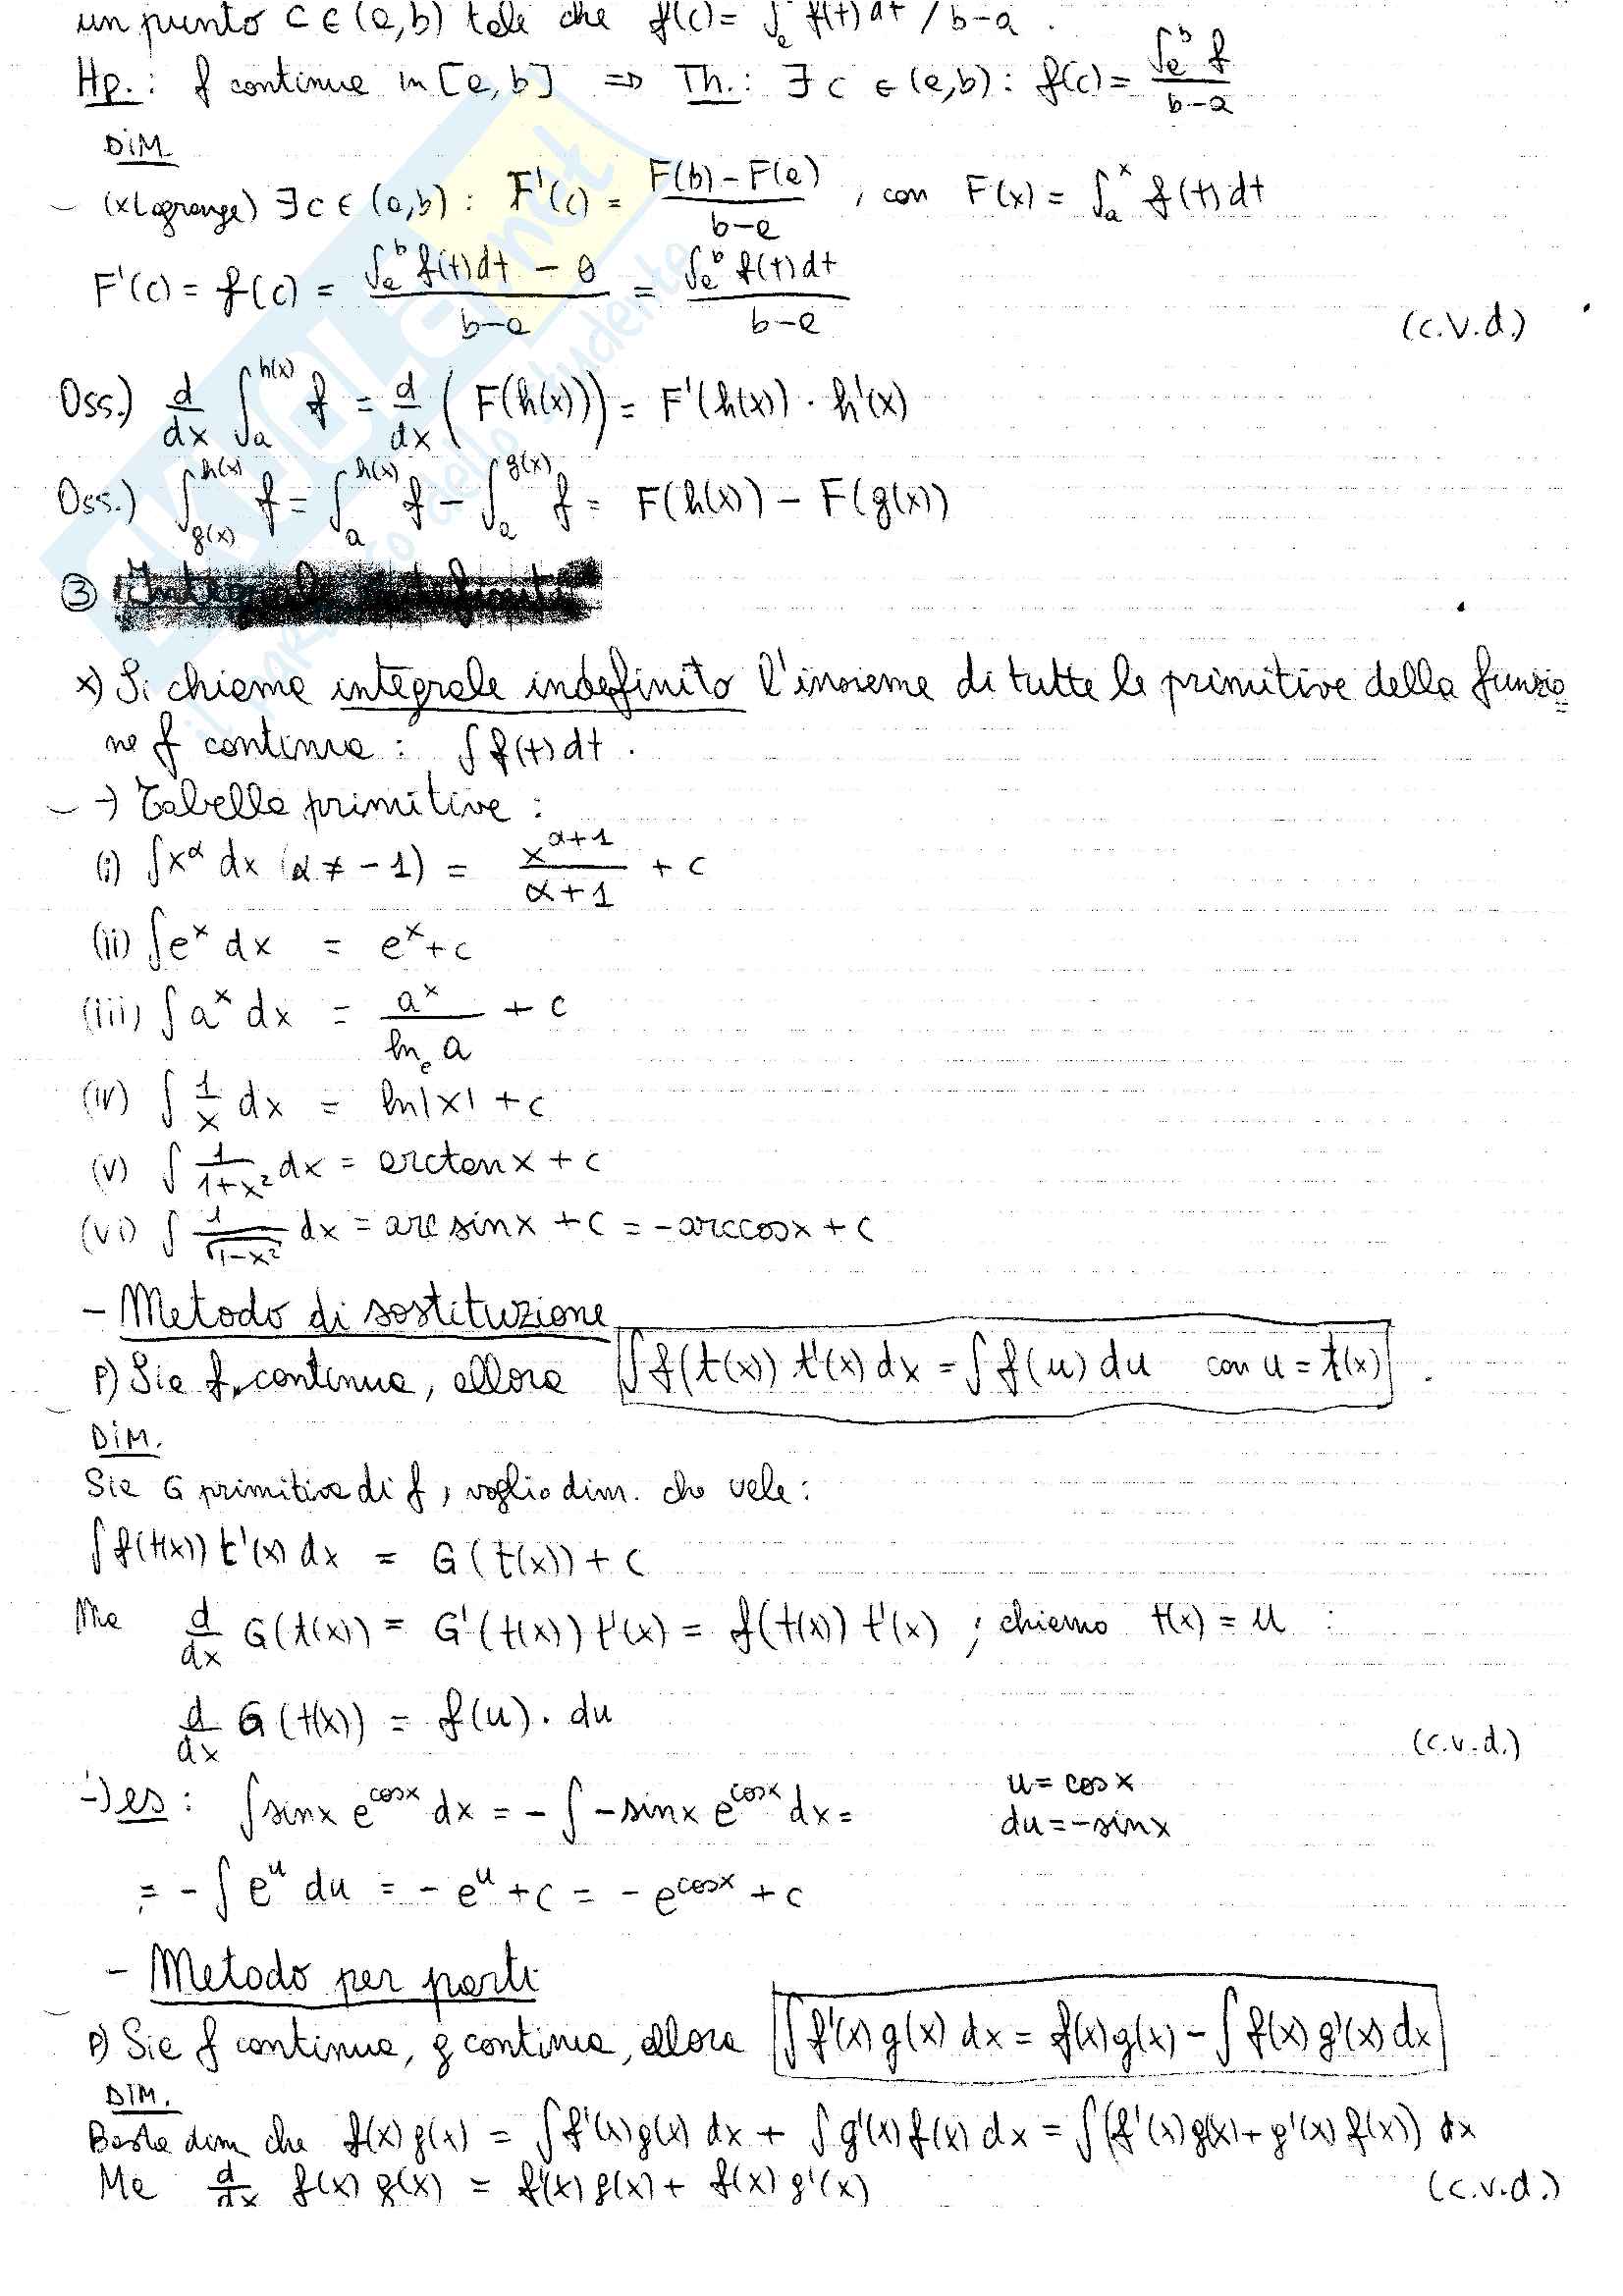 un punto c ∈ (a,b) tale che f(c) = ∫ₐ f(t) dt / b-a .
Hp.: f continua in [a,b] ⇒ Th.: ∃ c ∈ (a,b): f(c) = ∫ₐᵇ f / b-a
DIM
(x Lagrange) ∃ c ∈ (a,b): F'(c) = F(b) - F(a) / b-a , con F(x) = ∫ₐˣ f(t) dt
F'(c) = f(c) = ∫ₐᵇ f(t)dt - 0 / b-a = ∫ₐᵇ f(t)dt / b-a (c.v.d.)
Oss.) d/dx ∫ₐ^h(x) f = d/dx ( F(h(x)) ) = F'(h(x)) · h'(x)
Oss.) ∫_g(x)^h(x) f = ∫ₐ^h(x) f - ∫ₐ^g(x) f = F(h(x)) - F(g(x))
③
x) Si chiama integrale indefinito l'insieme di tutte le primitive della funzio
ne f continua: ∫ f(t) dt .
→ Tabella primitive:
(i) ∫ x^α dx (α ≠ -1) = x^(α+1) / α+1 + c
(ii) ∫ eˣ dx = eˣ + c
(iii) ∫ aˣ dx = aˣ / lnₑ a + c
(iv) ∫ 1/x dx = ln|x| + c
(v) ∫ 1/1+x² dx = arctan x + c
(vi) ∫ 1/√1-x² dx = arc sin x + c = -arccos x + c
- Metodo di sostituzione
P) Sia f continua, allora ∫ f(t(x)) t'(x) dx = ∫ f(u) du con u = t(x) .
DIM.
Sia G primitiva di f, voglio dim. che vale:
∫ f(t(x)) t'(x) dx = G(t(x)) + c
Ma d/dx G(t(x)) = G'(t(x)) t'(x) = f(t(x)) t'(x) ; chiamo t(x) = u :
d/dx G(t(x)) = f(u) · du (c.v.d.)
→ es: ∫ sinx e^cosx dx = - ∫ -sinx e^cosx dx = u = cosx
du = -sinx
= - ∫ eᵘ du = - eᵘ + c = - e^cosx + c
- Metodo per parti
P) Sia f continua, g continua, allora ∫ f'(x) g(x) dx = f(x) g(x) - ∫ f(x) g'(x) dx
DIM.
Basta dim che f(x) g(x) = ∫ f'(x) g(x) dx + ∫ g'(x) f(x) dx = ∫ (f'(x) g(x) + g'(x) f(x)) dx
Ma d/dx f(x) g(x) = f'(x) g(x) + f(x) g'(x) (c.v.d.)